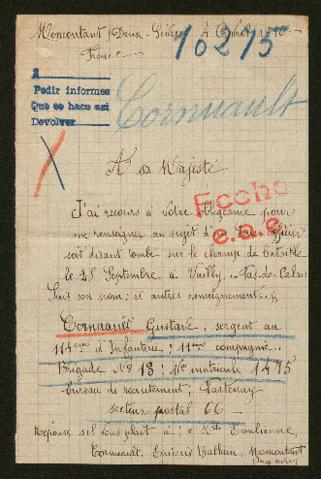 Moncoutant (Deux-Sèvres) 4
France
16275
1
Pedir informes
Que se hace asi
Devolver
Cornuault
A Sa Majesté
J'ai recours à votre obligeance pour
me renseigner au sujet d'un Sous Officier
soit disant tombé sur le champ de bataille
le 28 Septembre à Vailly, Pas-de-Calais
Suit son nom; et autres renseignements
Fecha
e.a.e.
Cornuault Gustave, sergent au
114ème d'Infanterie; 11ème compagnie.
Brigade No 13; No matricule 1475
bureau de recrutement, Partenay
secteur postal 66
Réponse s'il vous plaît à; Emilienne
Cornuault, Moncoutant